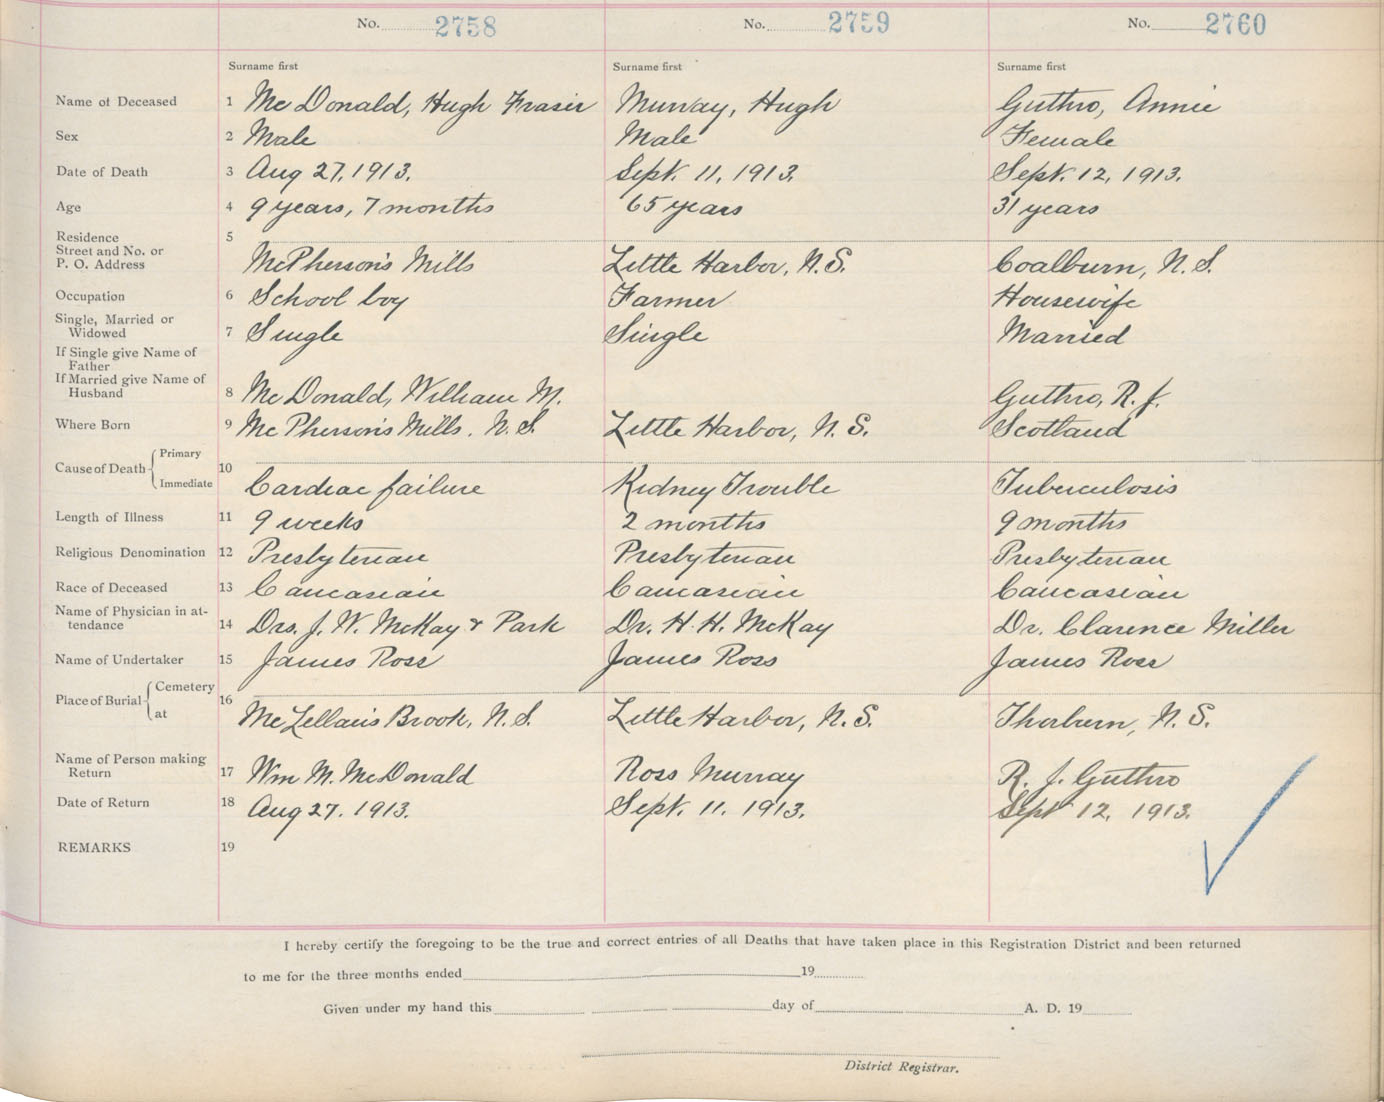 No. 2758 No. 2759 No. 2760
Surname first Surname first Surname first
Name of Deceased 1 McDonald, Hugh Fraser Murray, Hugh Guthro, Annie
Sex 2 Male Male Female
Date of Death 3 Aug 27, 1913. Sept. 11, 1913. Sept. 12, 1913.
Age 4 9 years, 7 months 65 years 31 years
Residence 5
Street and No. or
P. O. Address McPherson's Mills Little Harbor, N.S. Coalburn, N.S.
Occupation 6 School boy Farmer Housewife
Single, Married or
Widowed 7 Single Single Married
If Single give Name of
Father
If Married give Name of
Husband 8 McDonald, William M. Guthro, R. J.
Where Born 9 McPherson's Mills, N.S. Little Harbor, N.S. Scotland
Cause of Death Primary
10
Immediate Cardiac failure Kidney Trouble Tuberculosis
Length of Illness 11 9 weeks 2 months 9 months
Religious Denomination 12 Presbyterian Presbyterian Presbyterian
Race of Deceased 13 Caucasian Caucasian Caucasian
Name of Physician in at-
tendance 14 Drs. J. W. McKay & Park Dr. H. H. McKay Dr. Clarence Miller
Name of Undertaker 15 James Ross James Ross James Ross
Place of Burial Cemetery 16
at McLellan's Brook, N.S. Little Harbor, N.S. Thorburn, N.S.
Name of Person making
Return 17 Wm M. McDonald Ross Murray R. J. Guthro
Date of Return 18 Aug 27. 1913. Sept. 11. 1913. Sept 12, 1913.
REMARKS 19
I hereby certify the foregoing to be the true and correct entries of all Deaths that have taken place in this Registration District and been returned
to me for the three months ended 19
Given under my hand this day of A. D. 19
District Registrar.